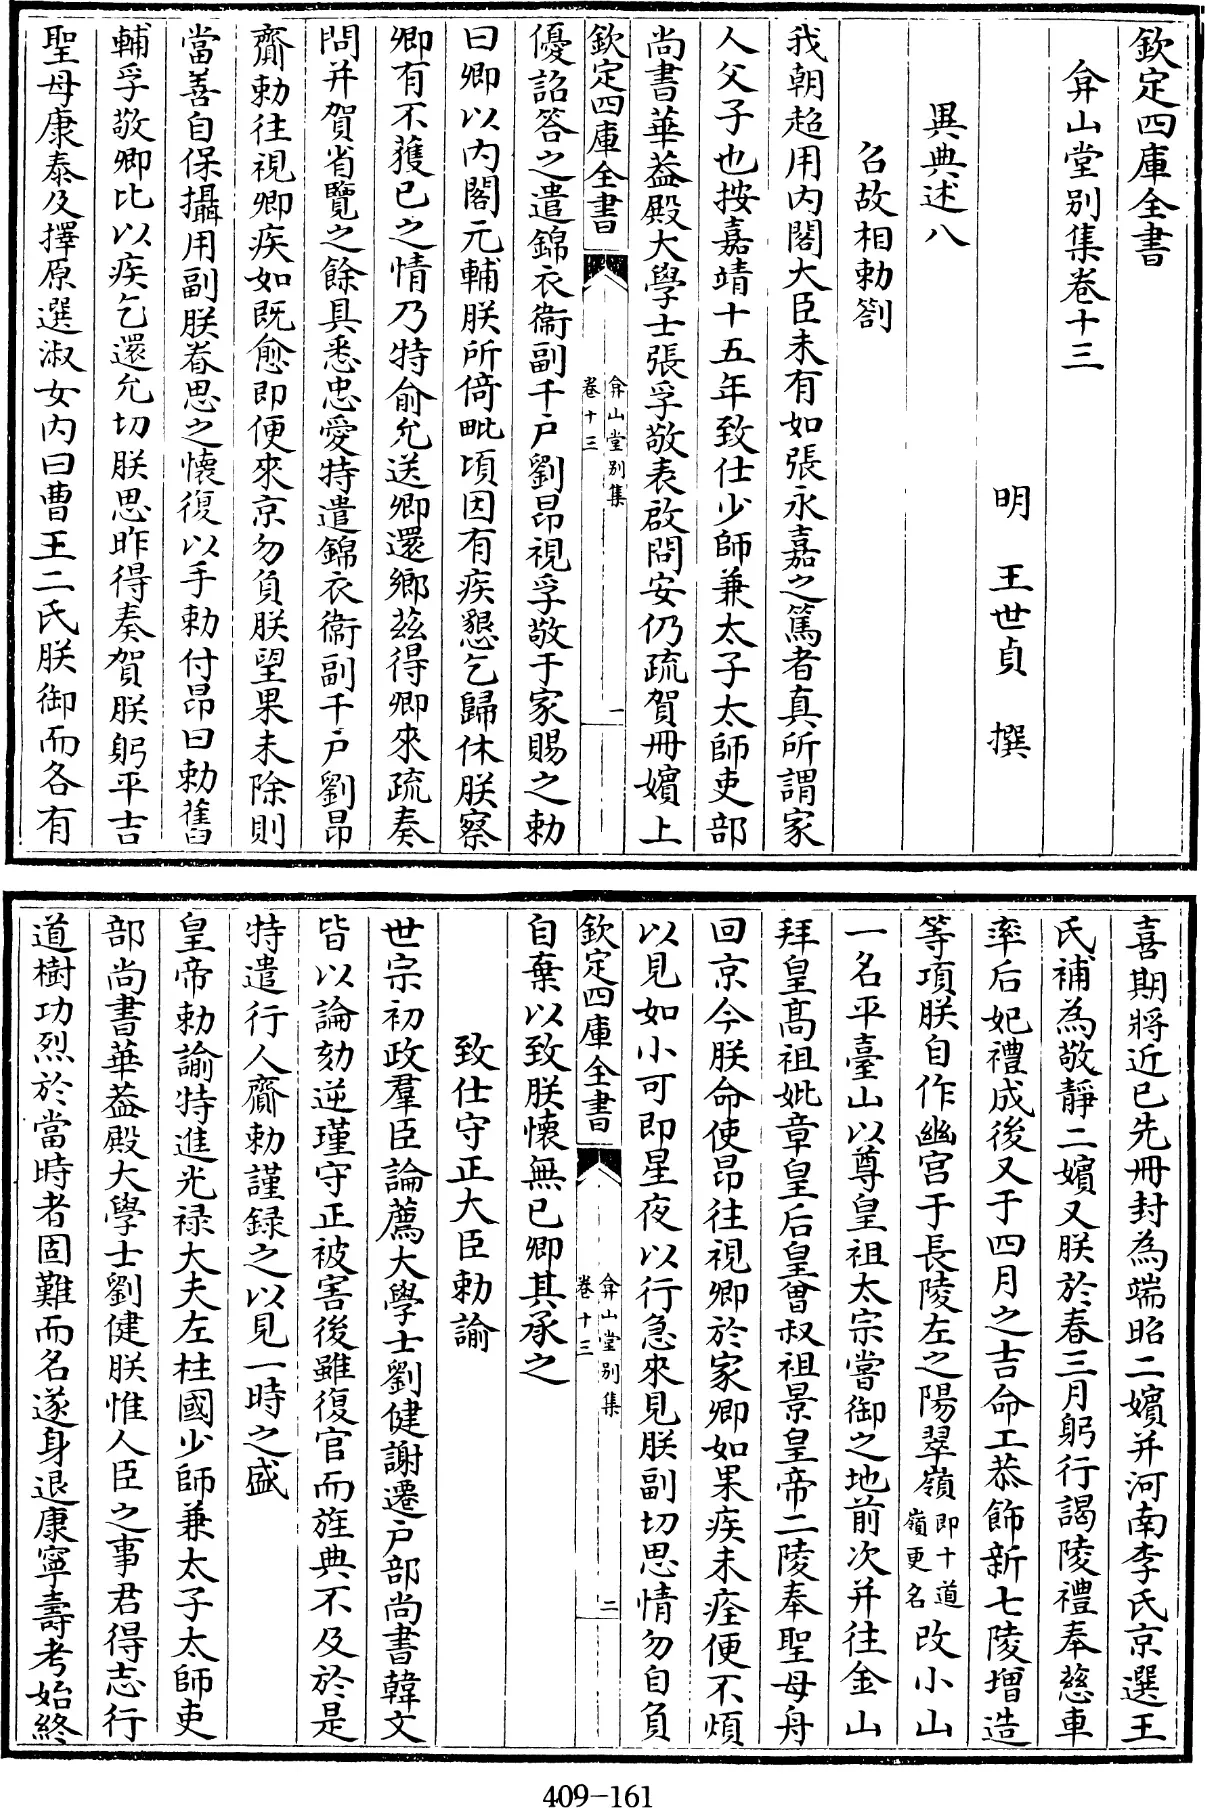 欽定四庫全書
弇山堂别集卷十三
明　王世貞　撰
異典述八
召故相勅劄
我朝超用内閣大臣未有如張永嘉之篤者真所謂家
人父子也按嘉靖十五年致仕少師兼太子太師吏部
尚書華葢殿大學士張孚敬表啟問安仍疏賀冊嬪上
欽定四庫全書
弇山堂别集
卷十三
一
優詔答之遣錦衣衞副千戸劉昂視孚敬于家賜之勅
曰卿以内閣元輔朕所倚毗頃因有疾懇乞歸休朕察
卿有不獲已之情乃特俞允送卿還鄉兹得卿來疏奏
問并賀省覽之餘具悉忠愛特遣錦衣衞副千戸劉昂
齎勅往視卿疾如既愈即便來京勿負朕望果未除則
當善自保攝用副朕眷思之懷復以手勅付昂曰勅舊
輔孚敬卿比以疾乞還允切朕思昨得奏賀朕躬平吉
聖母康泰及擇原選淑女内曰曹王二氏朕御而各有
喜期將近已先冊封為端昭二嬪并河南李氏京選王
氏補為敬靜二嬪又朕於春三月躬行謁陵禮奉慈車
率后妃禮成後又于四月之吉命工恭飾新七陵增造
等項朕自作幽宫于長陵左之陽翠嶺即十道嶺更名改小山
一名平臺山以尊皇祖太宗嘗御之地前次并往金山
拜皇髙祖妣章皇后皇曾叔祖景皇帝二陵奉聖母舟
回京今朕命使昂往視卿於家卿如果疾未痊便不煩
以見如小可即星夜以行急來見朕副切思情勿自負
欽定四庫全書
弇山堂别集
卷十三
二
自棄以致朕懷無已卿其承之
致仕守正大臣勅諭
世宗初政羣臣論薦大學士劉健謝遷戸部尚書韓文
皆以論劾逆瑾守正被害後雖復官而旌典不及於是
特遣行人齎勅謹録之以見一時之盛
皇帝勅諭特進光禄大夫左柱國少師兼太子太師吏
部尚書華葢殿大學士劉健朕惟人臣之事君得志行
道樹功烈於當時者固難而名遂身退康寧壽考始終
409-161